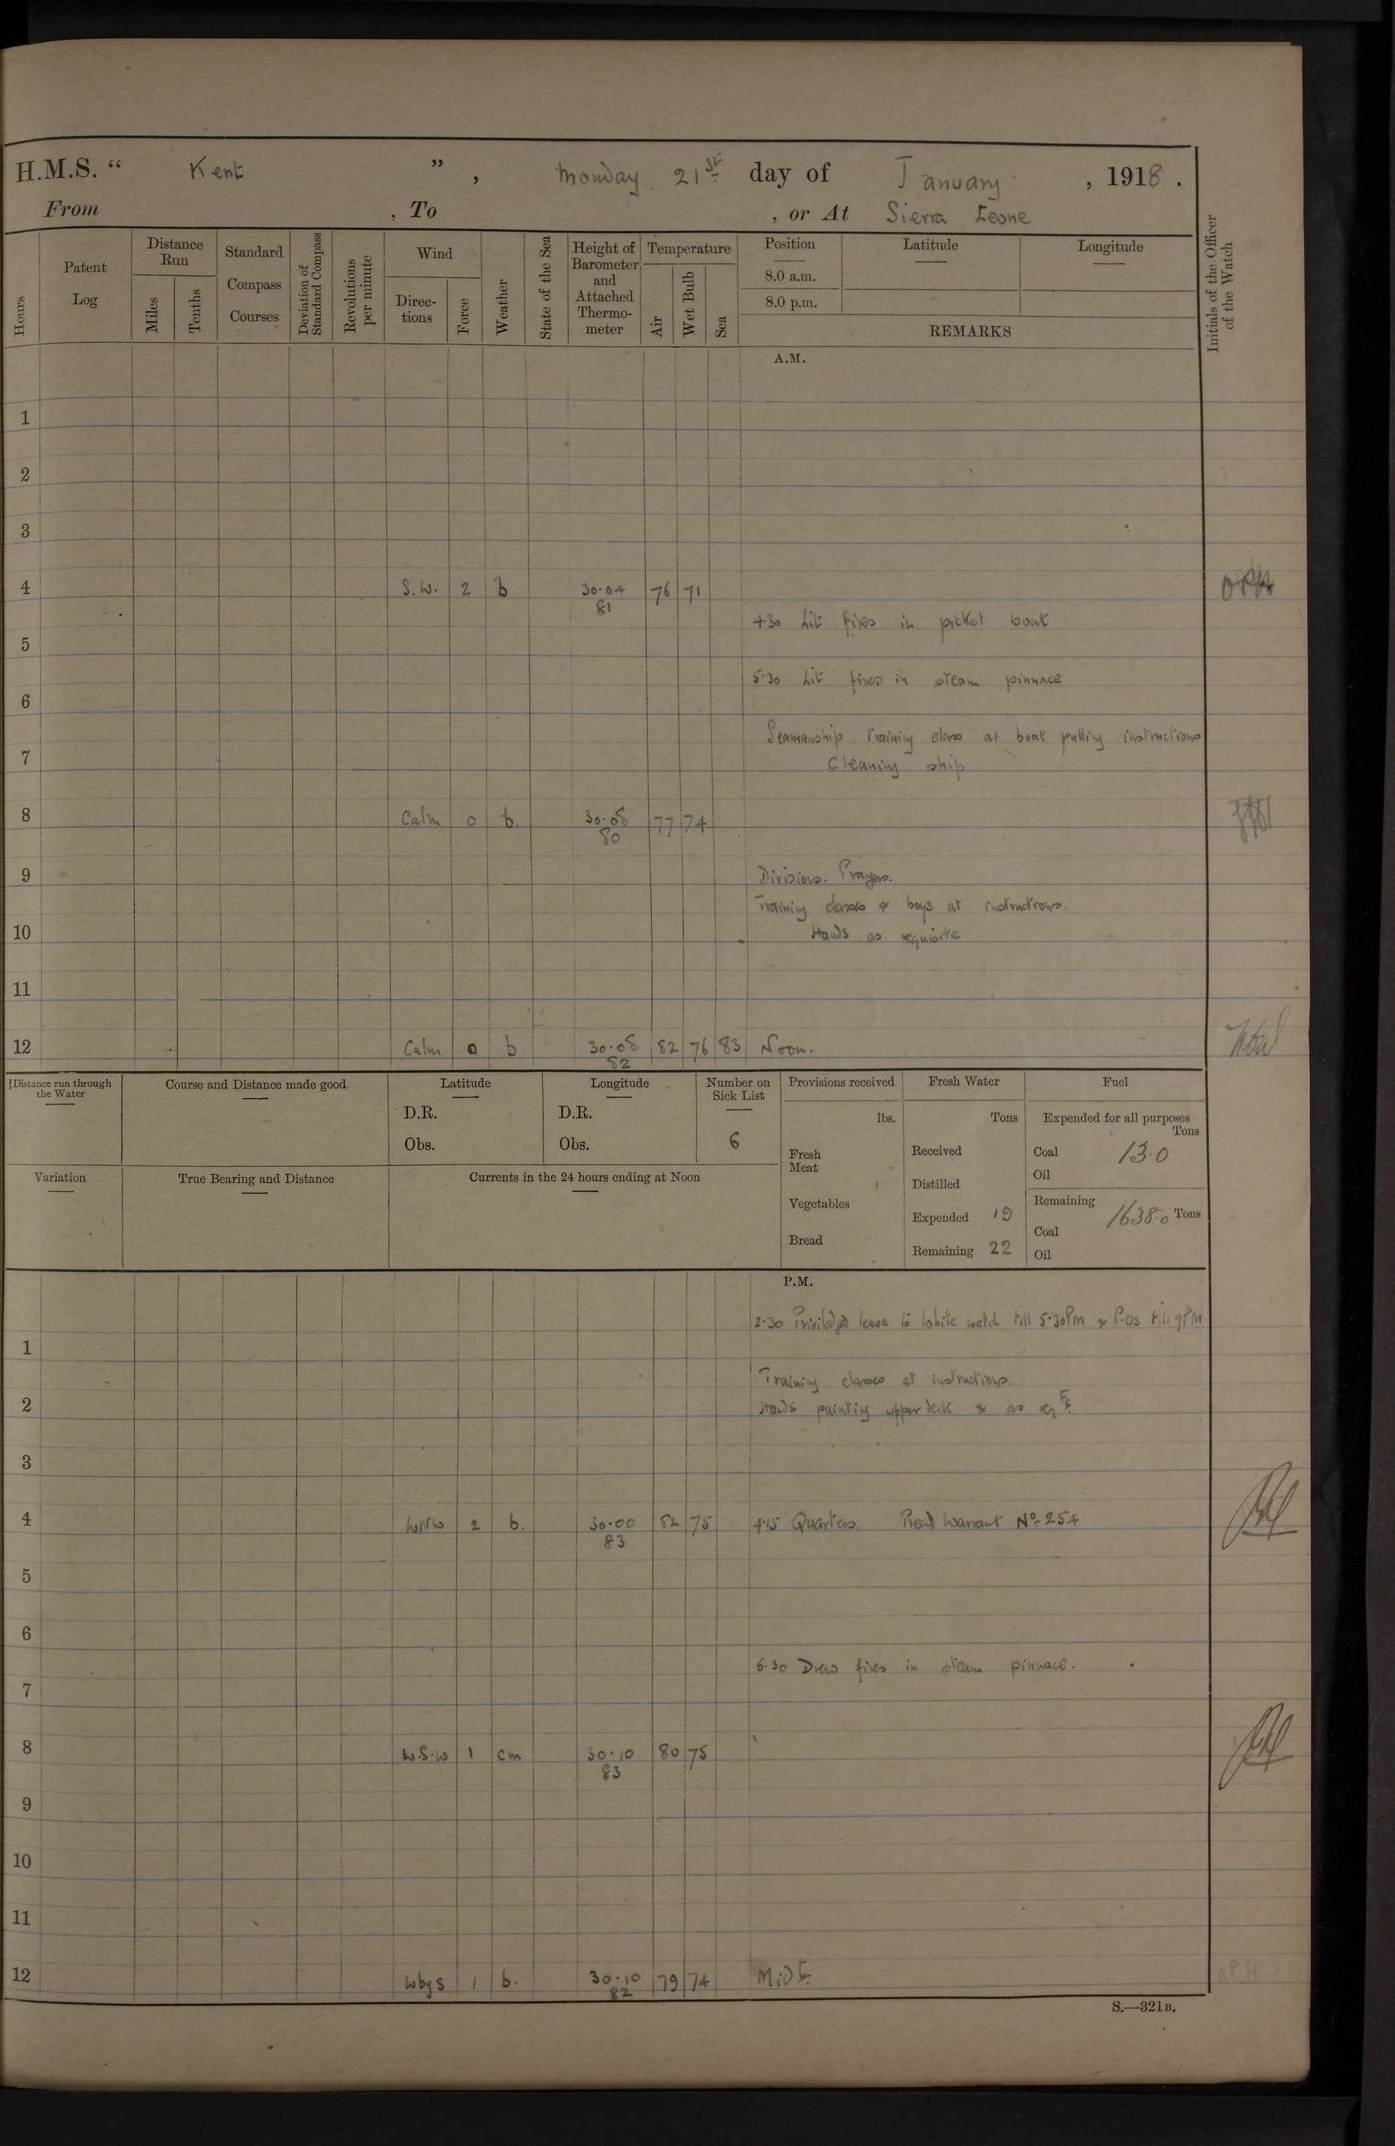 H.M.S. “ Kent ” , Monday 21st day of January , 1918 .
From , To , or At Sierra Leone
Hours
Patent Log
Distance Run
Miles
Tenths
Standard Compass Courses
Deviation of Standard Compass
Revolutions per minute
Wind
Directions
Force
Weather
State of the Sea
Height of Barometer and Attached Thermometer
Temperature
Air
Wet Bulb
Sea
Position
8.0 a.m.
8.0 p.m.
Latitude
Longitude
REMARKS
Initials of the Officer of the Watch
A.M.
1
2
3
4 S.W. 2 b 30.04 76 71
81
4.30 Lit fires in picket boat
5
5.30 Lit fires in steam pinnace
6
Seamanship training class at boat pulling instructions
7
Cleaning ship
8 Calm 0 b. 30.08 77 74
80
9 Divisions. Prayers.
Training classes & boys at instructions.
10 Hands as requisite
11
12 Calm 0 b 30.08 82 76 83 Noon.
82
Distance run through the Water
Course and Distance made good
Latitude
D.R.
Obs.
Longitude
D.R.
Obs.
Number on Sick List
6
Provisions received
lbs.
Fresh Meat
Vegetables
Bread
Fresh Water
Tons
Received
Distilled
Expended 19
Remaining 22
Fuel
Expended for all purposes
Tons
Coal 13.0
Oil
Remaining
Coal 1638.0 Tons
Oil
Variation
True Bearing and Distance
Currents in the 24 hours ending at Noon
P.M.
2.30 leave to White watch till 5.30PM & P.Os till 9PM
1
Training classes at instructions.
2 Hands painting upper deck & as
3
4 WNW 2 b. 30.00 82 75 4.15 Quarters. Read Warrant No. 254
83
5
6
6.30 Drew fires in steam pinnace.
7
8 W.S.W 1 cm 30.10 80 75
83
9
10
11
12 WbyS 1 b. 30.10 79 74 Midt.
82
S.—321B.